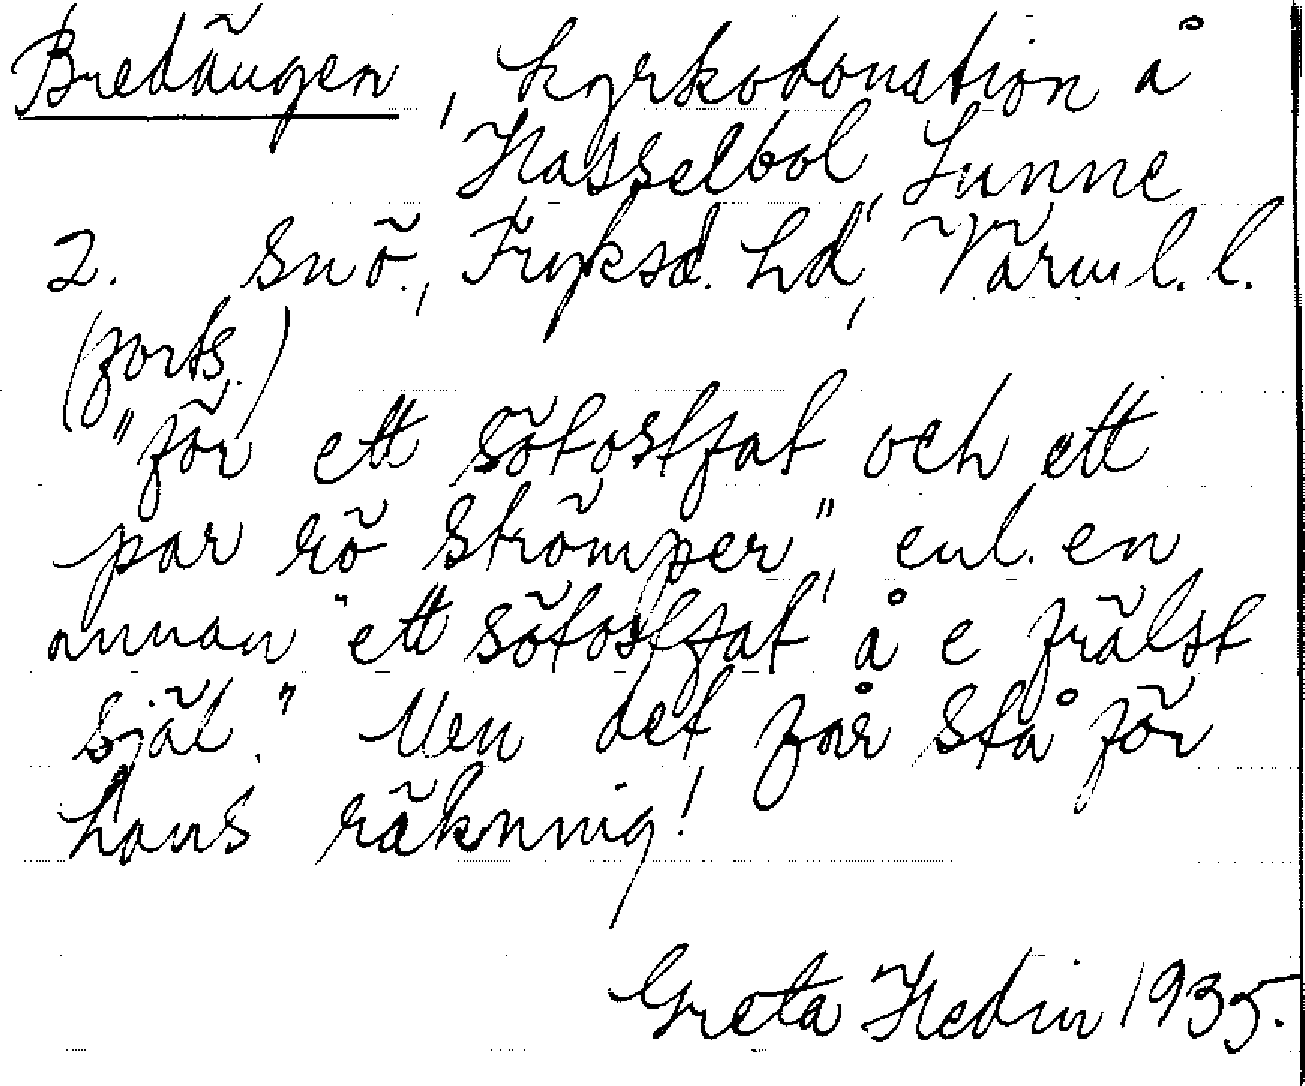 Bredängen, kyrkodonation å
Hasselbol, Sunne
2. Snö., Fryksd. hd, Värml. l.
(forts.)
"för ett sötostfat och ett
par rö strömper", enl. en
annan "ett sötostfat å e frälst
själ." Men det får stå för
hans räkning!
Greta Hedin 1935.